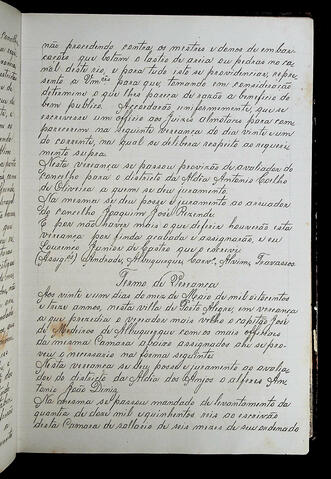 não procedendo contra os mestres e donos de embar-
cações que botam o lastro de areia ou pedras no ca-
nal deste rio, e para tudo isto se providenciar, repre-
sento a Vm.ces para que, tomando em consideração
determine o que lhes pareça de razão a beneficio do
bem publico. Accordarão uniformemente, que se
escrevesse um officio aos Juizes almotacés para com-
parecerem na seguinte vereança do dia vinte e um
do corrente, na qual se delibera respeito ao requeri-
mento supra.
Nesta vereança se passou provisão de avaliador do
Concelho para o districto da Aldia Antonio Coelho
de Oliveira a quem se deu juramento.
Na mesma se deu posse e juramento ao arruador
do concelho Joaquim José Rezende.
E por não haver mais o que deferir houverão esta
vereança por finda acabada e assignarão, e eu
Lourenço Junior de Castro que o escrevi
(Assig.os) Andrade, Albuquerque, Carv.º, Alvim, Travassos.
Termo de Vereança
Aos vinte e um dias do mez de Maio de mil oitocentos
e treze annos, nesta villa de Porto Alegre, em vereança
a que prezidiu o vereador mais velho o capitão José
de Medeiros de Albuquerque com os mais officiaes
da mesma Camara abaixo assignados ahi se pro-
veu o necessario na forma seguinte
Nesta vereança se deu posse e juramento ao avalia-
dor do districto da Aldia dos Anjos o alferes An-
tonio João
Na mesma se passou mandado de levantamento da
quantia de doze mil e quinhentos reis ao escrivão
desta Camara do sallario de seis mezes de seu ordenado